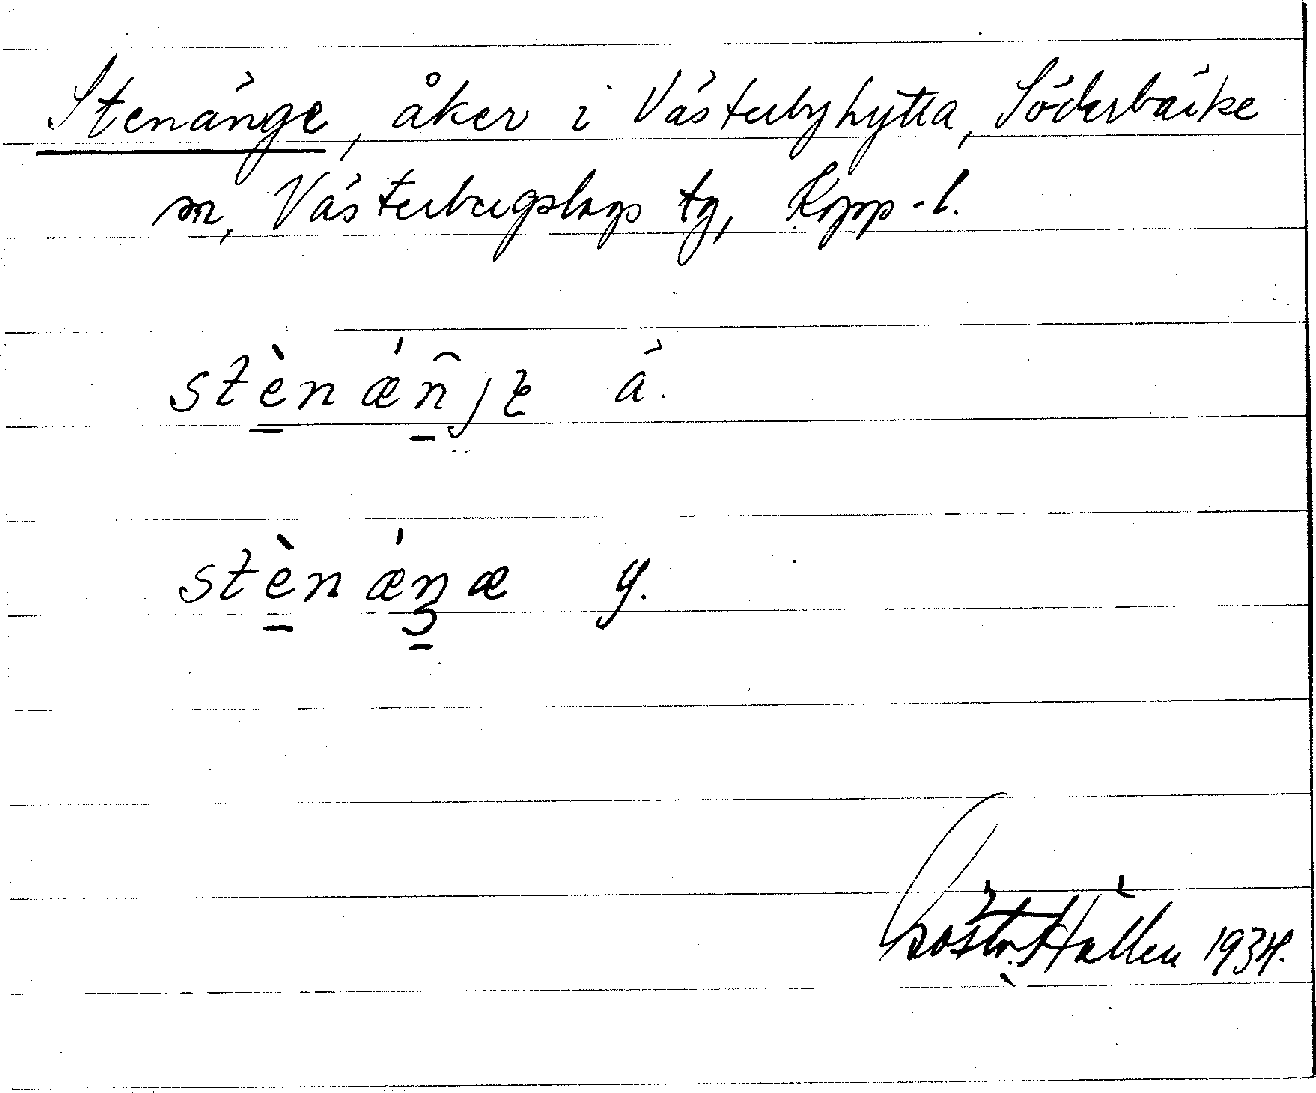 Stenänge, åker i Västerbyhytta, Söderbärke
sn, Västerbergslags tg, Kopp-l.
stènǽn̂jɛ ä.
stènǽnæ y.
Gösta Hallén 1934.